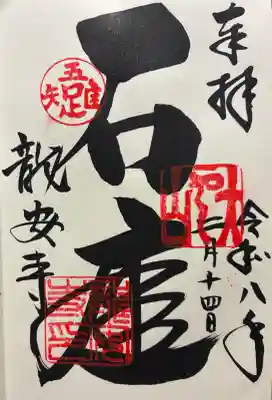 奉拝
令和八年
七月十四日
石庭
吾唯足知
龍安寺